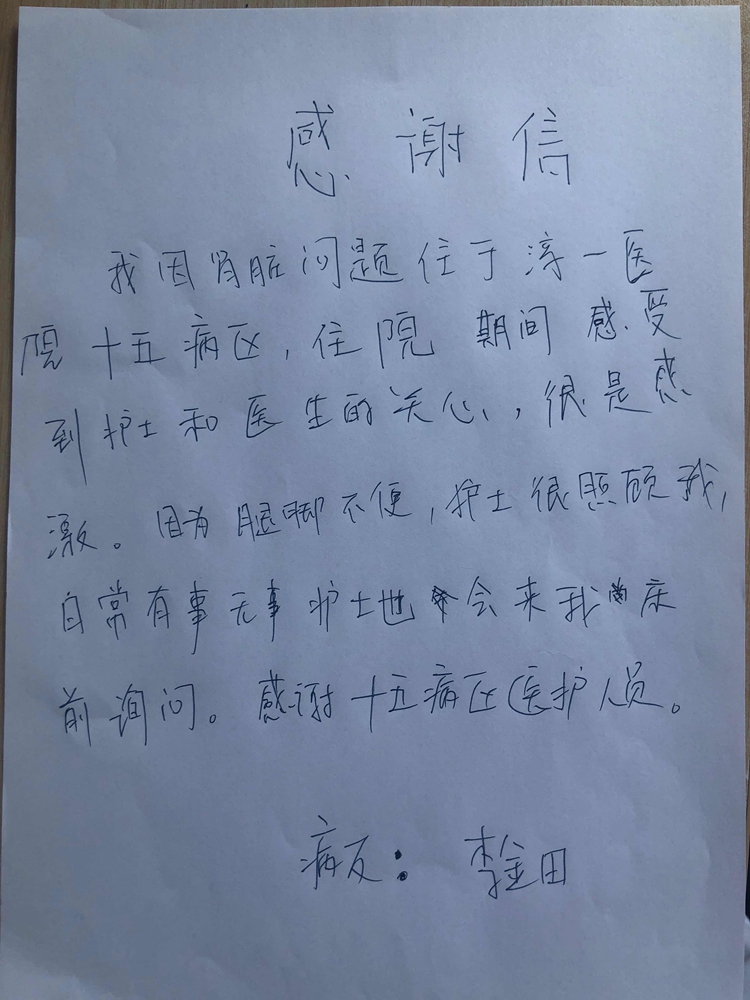 感谢信
我因肾脏问题住于淳一医
院十五病区,住院期间感受
到护士和医生的关心,很是感
激。因为腿脚不便,护士很照顾我,
日常有事无事护士也会来我床
前询问。感谢十五病区医护人员。
病友:李金田